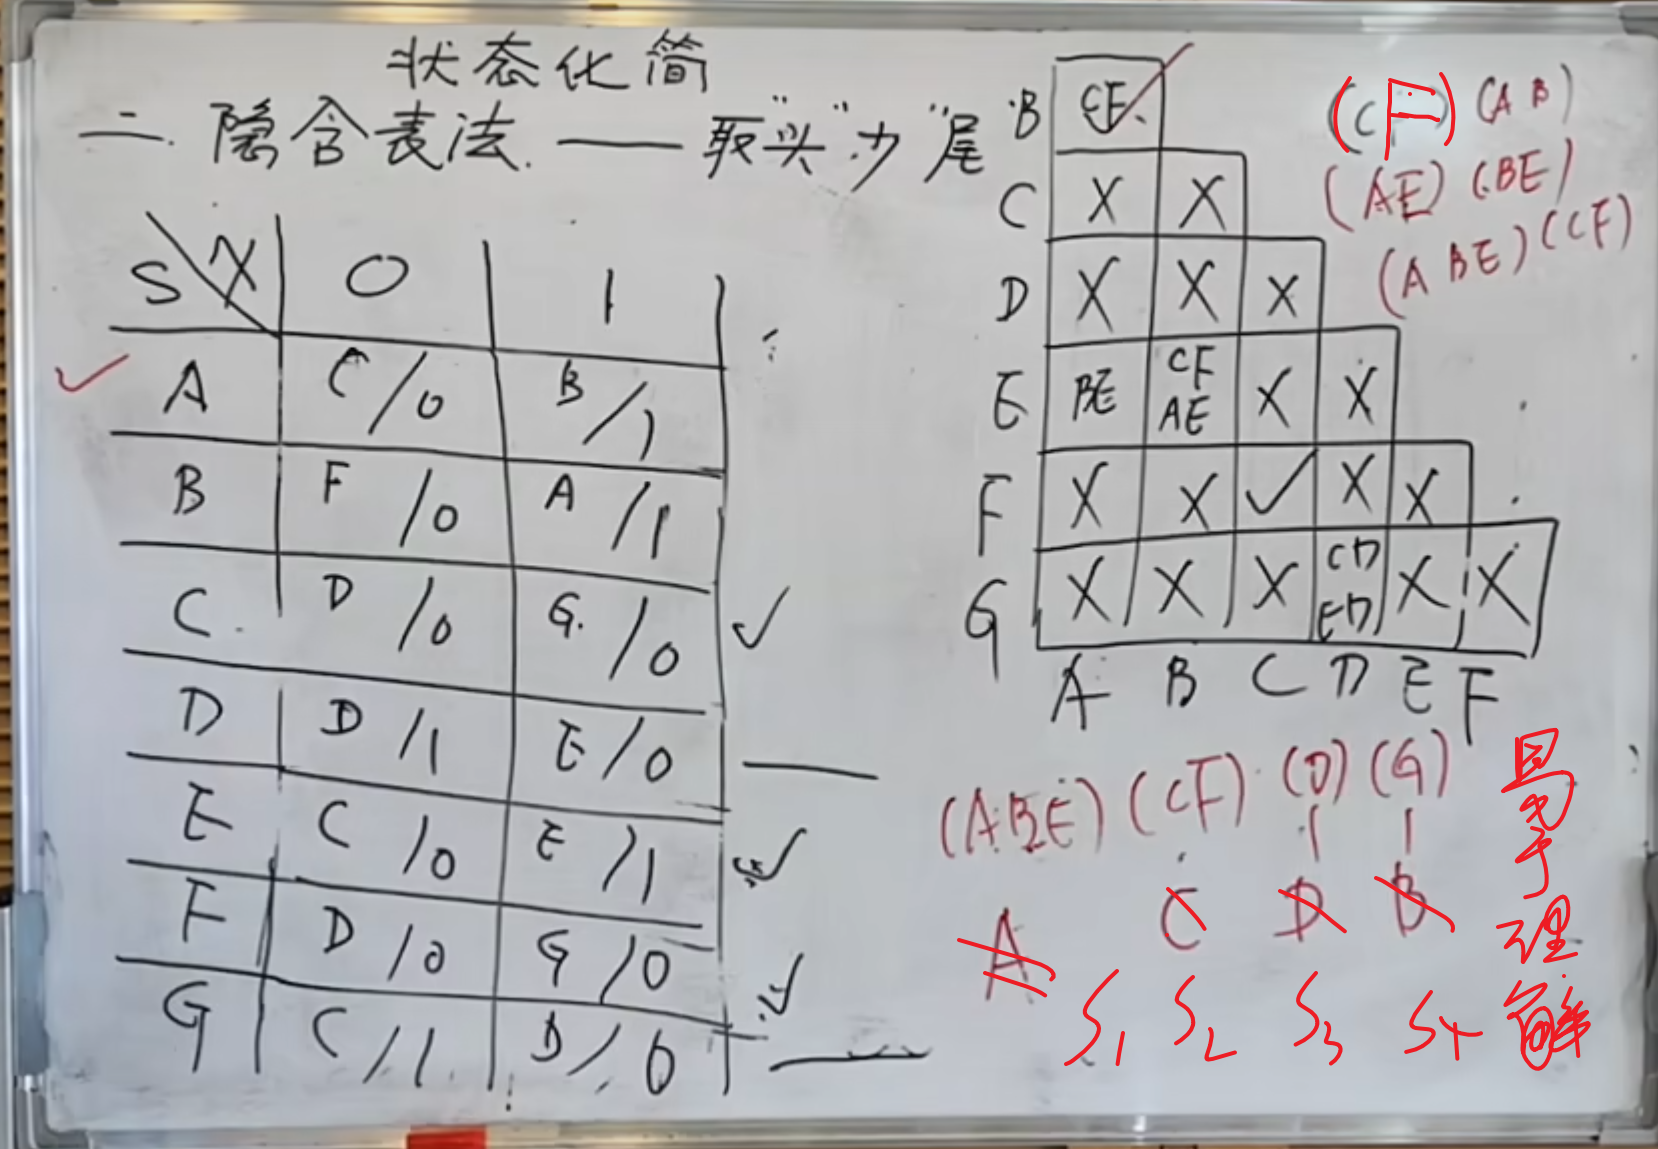 状态化简
二.隐含表法.——取"头"少"尾
S X 0 1
A C/0 B/1
B F/0 A/1
C. D/0 G./0
D D/1 E/0
E C/0 E/1
F D/0 G/0
G C/1 D/0
B CF
C X X
D X X X
E BE CF AE X X
F X X ✓ X X
G X X X CD ED X X
A B C D E F
(CF) (AB)
(AE) (BE)
(ABE) (CF)
(ABE) (CF) (D) (G)
A C D B
S1 S2 S3 S4
易于理解